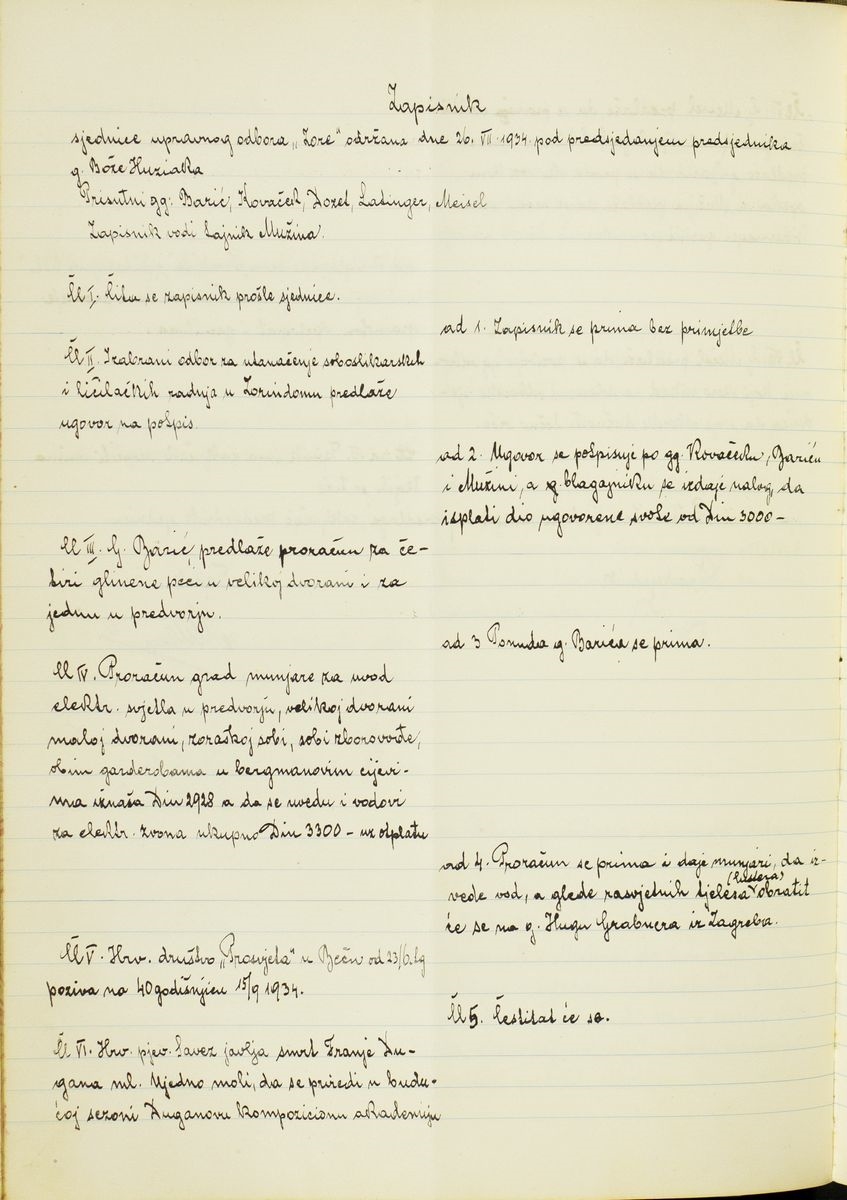 Zapisnik
sjednice upravnog odbora „Zore“ održana dne 26. VII 1934. pod predsjedanjem predsjednika
g. Bože Huziaka
Prisutni gg: Barić, Kovaček, Dozet, Latinger, Meisel
Zapisnik vodi tajnik Mužina.
Čl I. Čita se zapisnik prošle sjednice.
ad 1. Zapisnik se prima bez primjetbe
Čl II. Izabrani odbor za utanačenje soboslikarskih
i ličilačkih radnja u Zorindomu predlaže
ugovor na potpis.
ad 2. Ugovor se potpisuje po gg. Kovačeku, Bariću
i Mužini, a g. blagajniku se izdaje nalog, da
isplati dio ugovorene svote od Din 3000-
Čl III. G. Barić, predlaže proračun za če-
tiri glinene peći u velikoj dvorani i za
jednu u predvorju.
ad 3 Ponuda g. Barića se prima.
Čl IV. Proračun grad munjare za uvod
elektr. svjetla u predvorju, velikoj dvorani
maloj dvorani, zoraškoj sobi, sobi zborovođe,
obim garderobama u bergmanovim cijevi-
ma iznaša Din 2928 a da se uvedu i vodovi
za elektr. zvona ukupno Din 3300- uz otplatu
ad 4. Proračun se prima i daje munjari, da iz-
vede vod, a glede rasvjetnih tjelesa (lustera) obratit
će se na g. Hugu Grabnera iz Zagreba.
Čl V. Hrv. društvo „Prosvjeta“ u Beču od 23/6. tg
poziva na 40 godišnjicu 15/9 1934.
Čl 5. Čestitat će se.
Čl VI. Hrv. pjev. Savez javlja smrt Franje Du-
gana ml. Ujedno moli, da se priredi u budu-
ćoj sezoni Duganovu kompozicionu akademiju